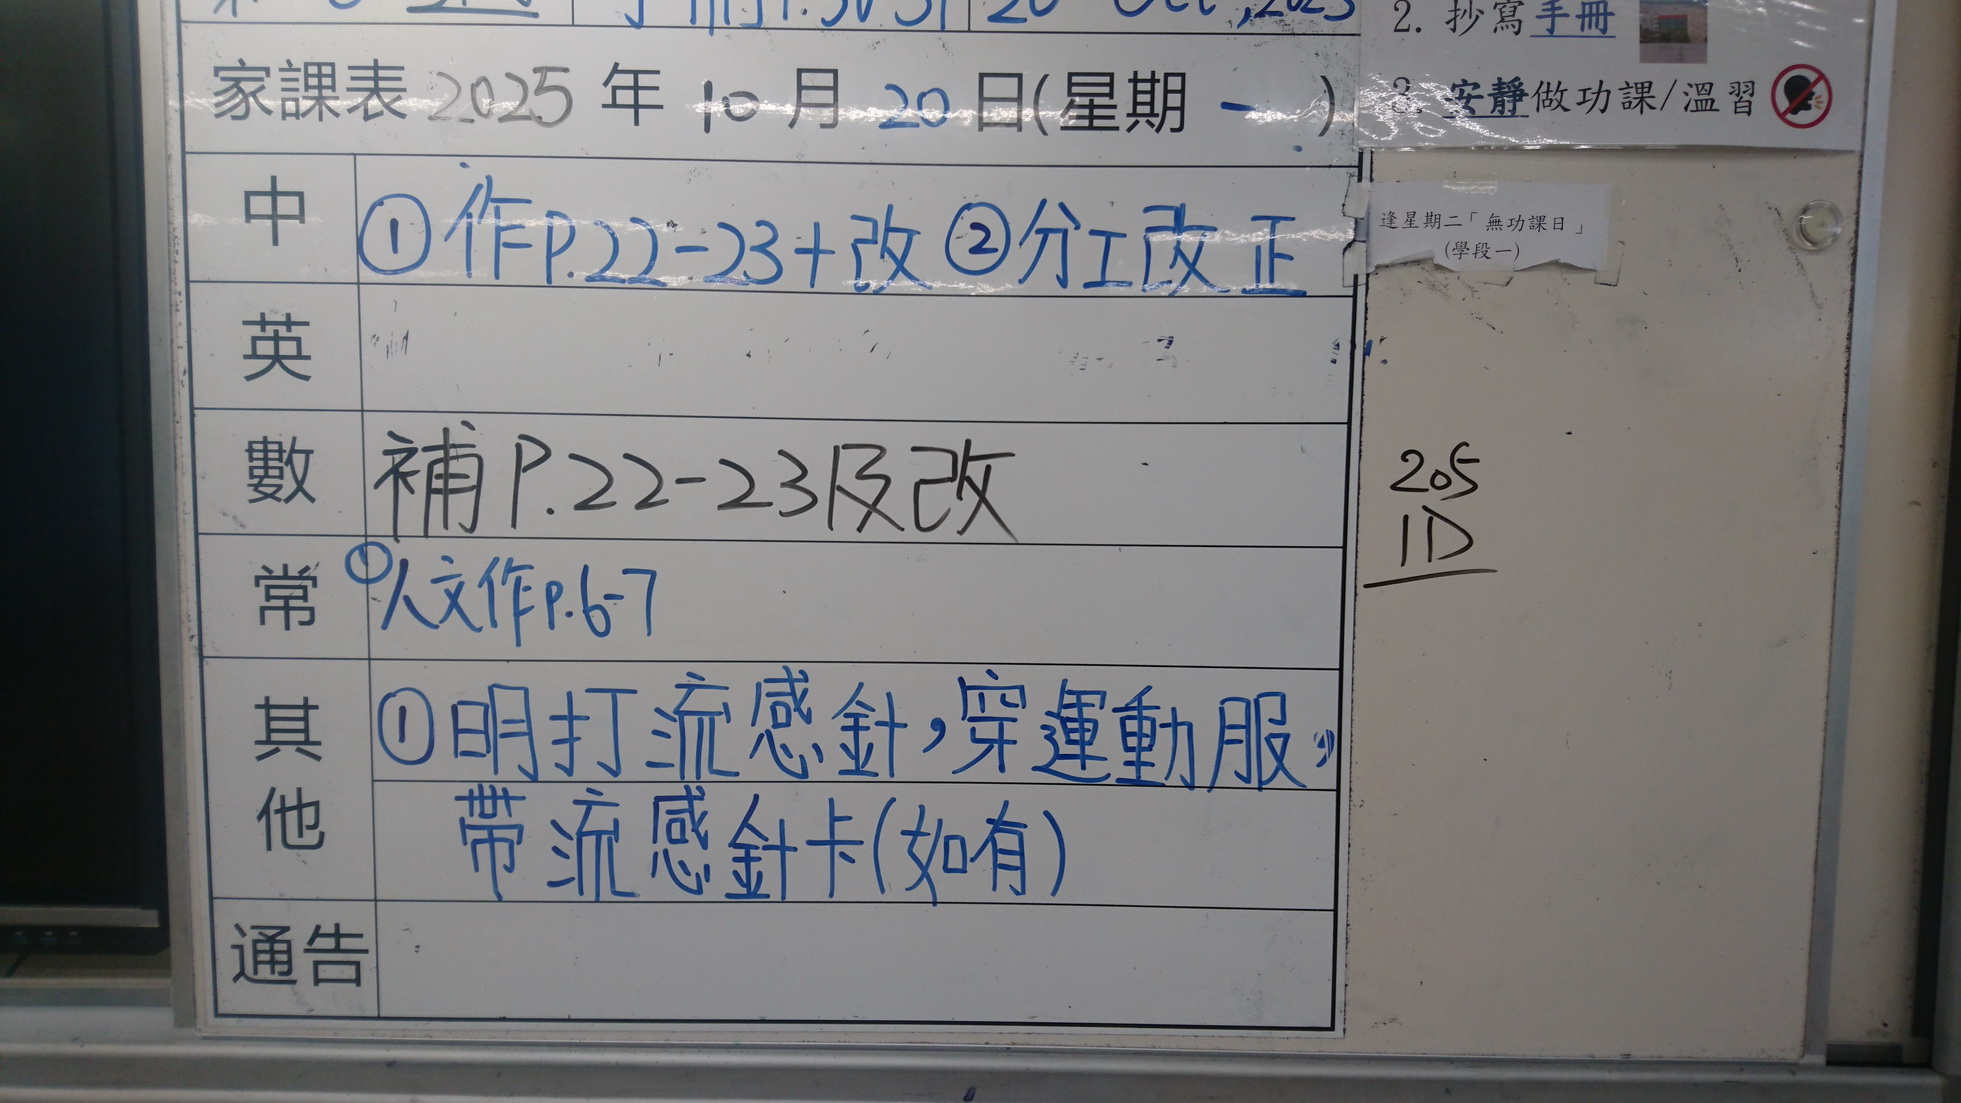 手冊P.30-31
20 Oct, 2025
家課表 2025 年 10 月 20 日(星期 一 )
中 ①作P.22-23+改 ②分工改正
英
數 補P.22-23及改
常 ①人文作P.6-7
其他 ①明打流感針,穿運動服,
帶流感針卡(如有)
通告
2. 抄寫手冊
3. 安靜做功課/溫習
逢星期二「無功課日」
(學段一)
205
1D